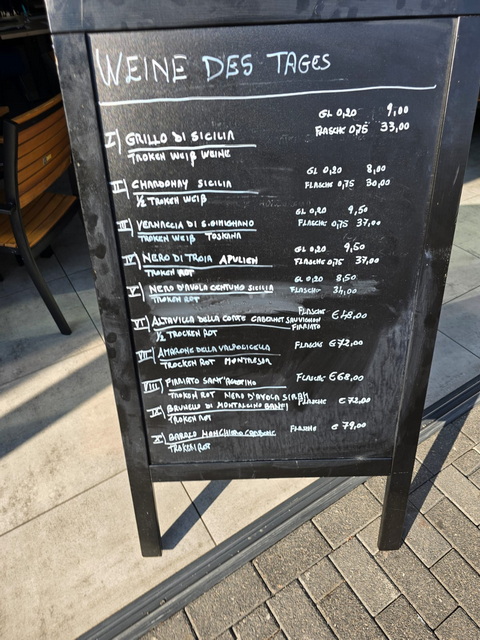 WEINE DES TAGES
I) GRILLO DI SICILIA GL 0,20 9,00
TROKEN WEIß WEINE FLASCHE 0,75 33,00
II) CHARDONAY SICILIA GL 0,20 8,00
½ TROKEN WEIß FLASCHE 0,75 30,00
III) VERNACCIA DI S.GIMIGNANO GL 0,20 9,50
TROKEN WEIß TOSKANA FLASCHE 0,75 37,00
IV) NERO DI TROIA APULIEN GL 0,20 9,50
TROKEN ROT FLASCHE 0,75 37,00
V) NERO D'AVOLA CENTUNO SICILIA GL 0,20 8,50
TROKEN ROT FLASCHE 34,00
VI) ALTAVILLA DELLA CORTE CABERNET SAUVIGNON FLASCHE €48,00
½ TROCKEN ROT FIRRIATO
VII) AMARONE DELLA VALPOLICELLA FLASCHE €72,00
TROCKEN ROT MONTRESOR
VIII) FIRRIATO SANT'AGOSTINO FLASCHE €68,00
TROKEN ROT NERO D'AVOLA SIRAH
IX) BRUNELLO DI MONTALCINO BANFI FLASCHE €72,00
TROKEN ROT
X) BAROLO FLASCHE €79,00
TROKEN ROT